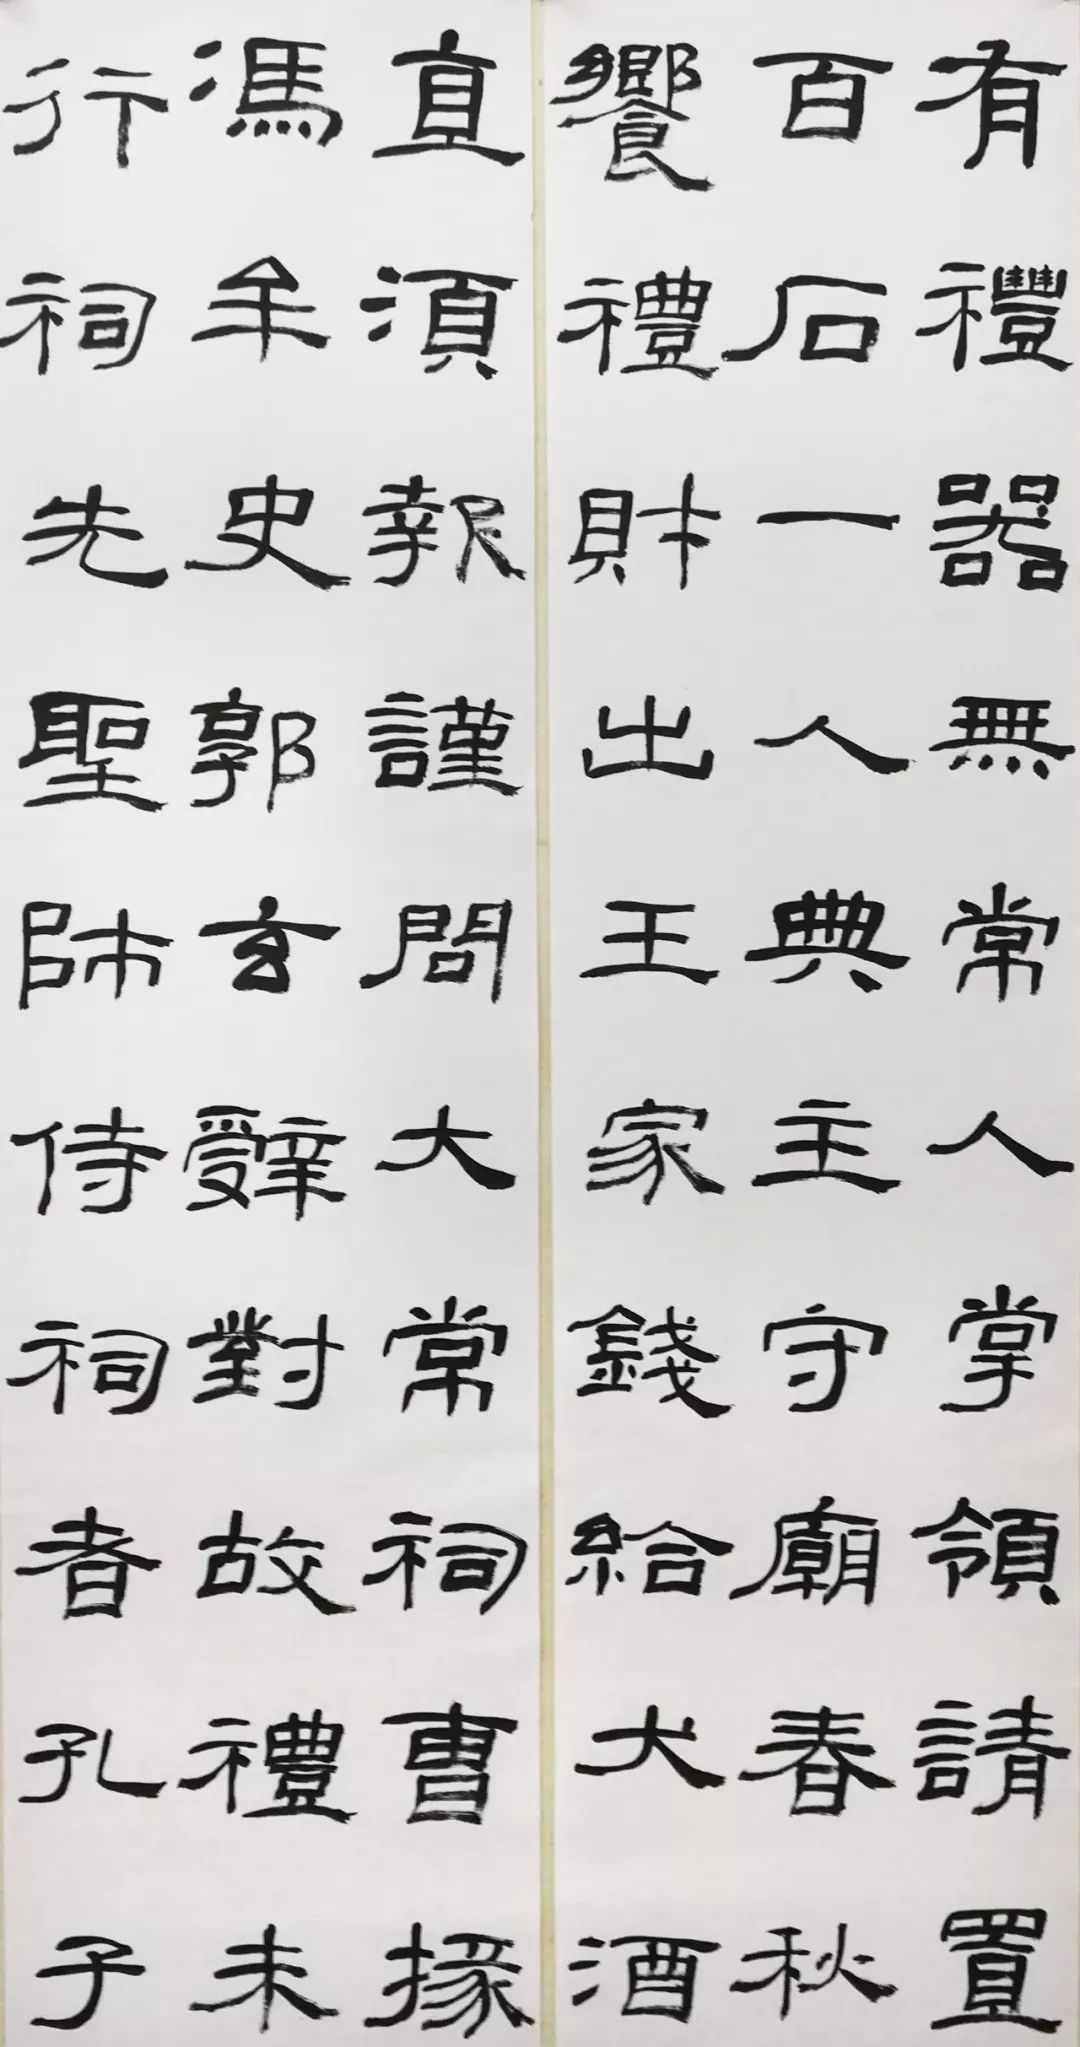 有禮器無常人掌領請置
百石一人典主守廟春秋
饗禮財出王家錢給犬酒
直須報謹問大常祠曹掾
馮牟史郭玄辭對故禮未
行祠先聖師侍祠者孔子